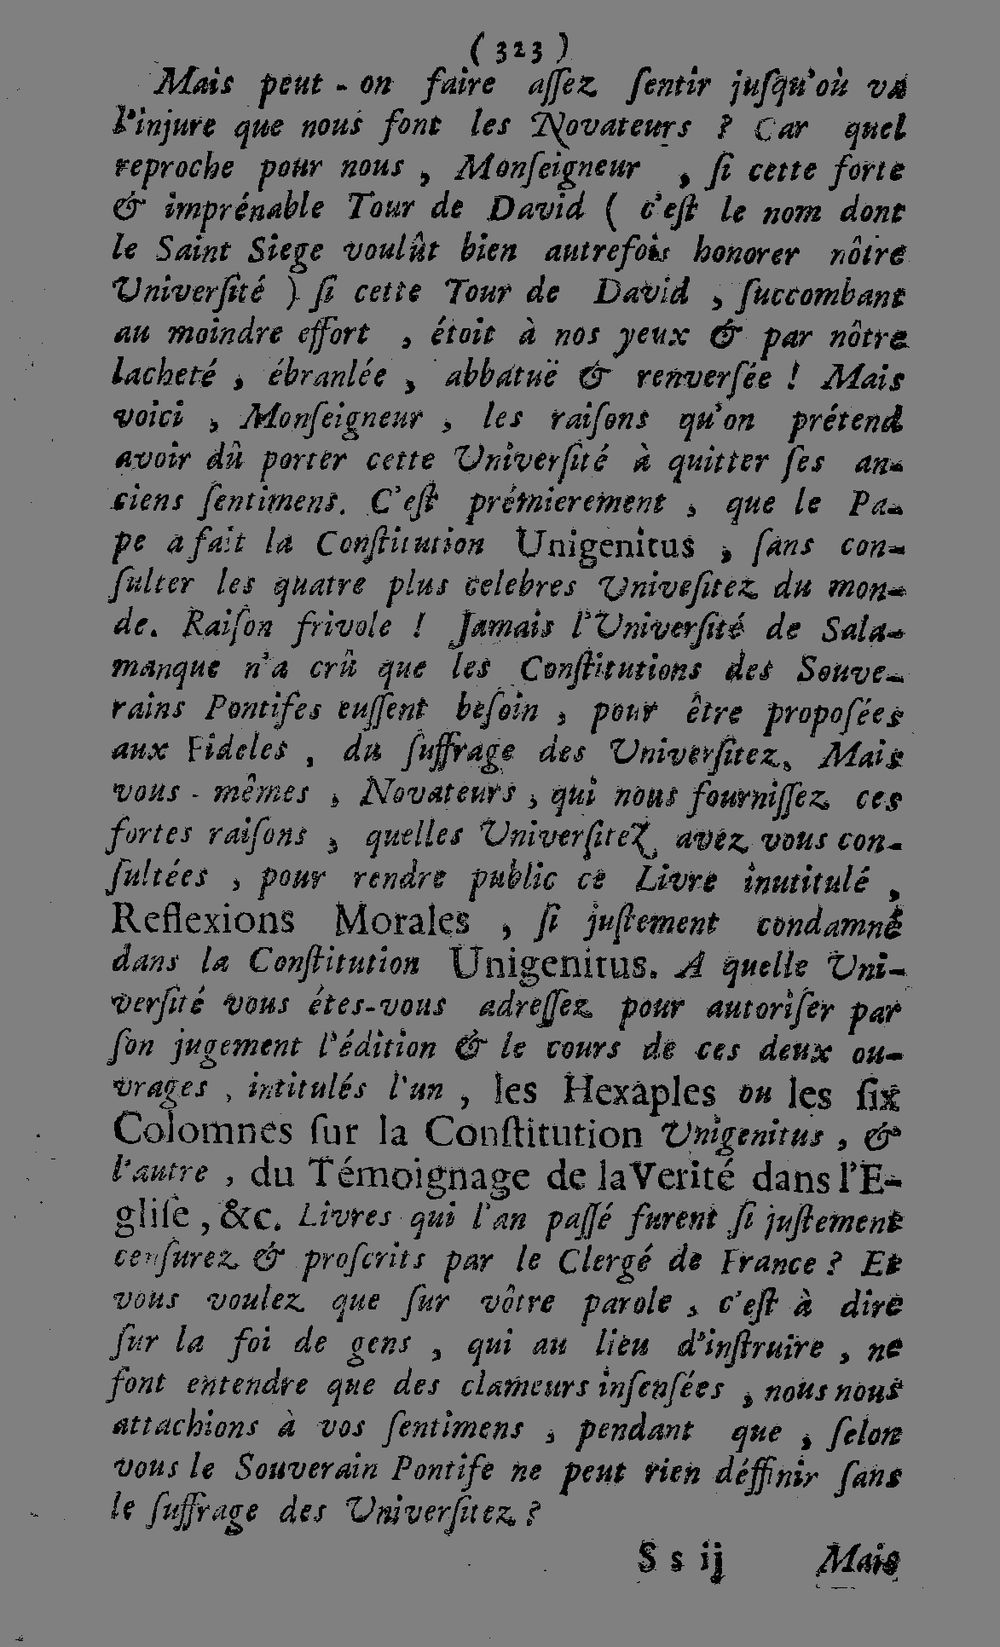 ( 323 )
Mais peut-on faire aſſez ſentir juſqu'où va
l'injure que nous font les Novateurs ? Car quel
reproche pour nous , Monſeigneur , ſi cette forte
& imprénable Tour de David ( c'eſt le nom dont
le Saint Siege voulût bien autrefois honorer nôtre
Univerſité ) ſi cette Tour de David , ſuccombant
au moindre effort , étoit à nos yeux & par nôtre
lacheté , ébranlée , abbatuë & renverſée ! Mais
voici , Monſeigneur , les raiſons qu'on prétend
avoir dû porter cette Univerſité à quitter ſes an-
ciens ſentimens. C'eſt prémierement , que le Pa-
pe a fait la Conſtitution Unigenitus , ſans con-
ſulter les quatre plus celebres Univeſitez du mon-
de. Raiſon frivole ! Jamais l'Univerſité de Sala-
manque n'a crû que les Conſtitutions des Souve-
rains Pontifes euſſent beſoin , pour être propoſées
aux Fideles , du ſuffrage des Univerſitez. Mais
vous-mêmes , Novateurs , qui nous fourniſſez ces
fortes raiſons , quelles Univerſitez avez vous con-
ſultées , pour rendre public ce Livre inutitulé ,
Reflexions Morales , ſi juſtement condamné
dans la Conſtitution Unigenitus. A quelle Uni-
verſité vous étes-vous adreſſez pour autoriſer par
ſon jugement l'édition & le cours de ces deux ou-
vrages , intitulés l'un , les Hexaples ou les ſix
Colomnes ſur la Conſtitution Unigenitus , &
l'autre , du Témoignage de la Verité dans l'E-
gliſe , &c. Livres qui l'an paſſé furent ſi juſtement
cenſurez & proſcrits par le Clergé de France ? Et
vous voulez que ſur vôtre parole , c'eſt à dire
ſur la foi de gens , qui au lieu d'inſtruire , ne
font entendre que des clameurs inſenſées , nous nous
attachions à vos ſentimens , pendant que , ſelon
vous le Souverain Pontife ne peut rien déffinir ſans
le ſuffrage des Univerſitez ?
S s ij Mais